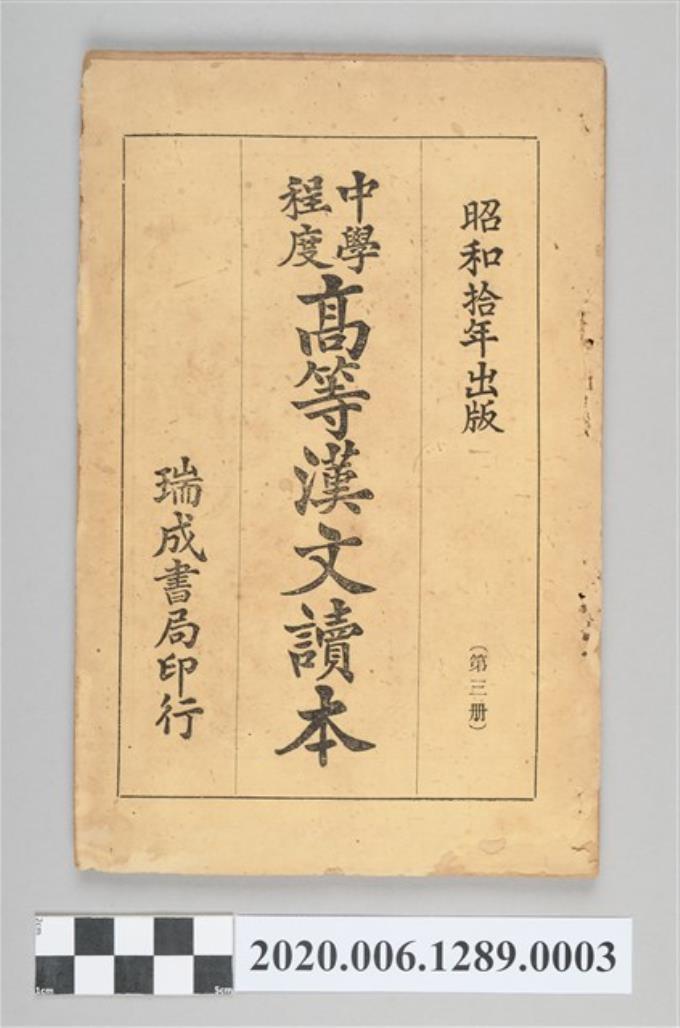 昭和拾年出版
(第三册)
中學
程度
高等漢文讀本
瑞成書局印行
2cm
1cm
5cm
2020.006.1289.0003